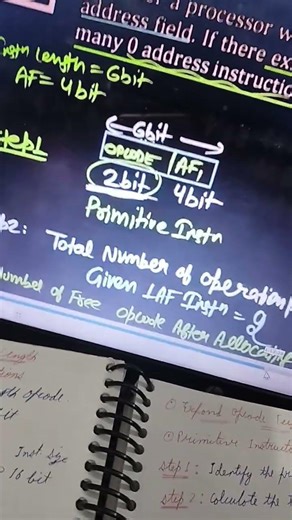 a processor w
address field. If there ex
many 0 address instructio
Instn Length = 6bit
AF = 4bit
Step1
6bit
OPCODE AF1
2bit 4bit
Primitive Instn
2: Total Number of operation
Given 1AF Instn = 2
Number of Free opcode After Allocation
Length
opcode
bit
Inst size
16 bit
① Expand opcode
② Primitive Instruct
Step 1 : Identify the pr
Step 2 : Calculate the